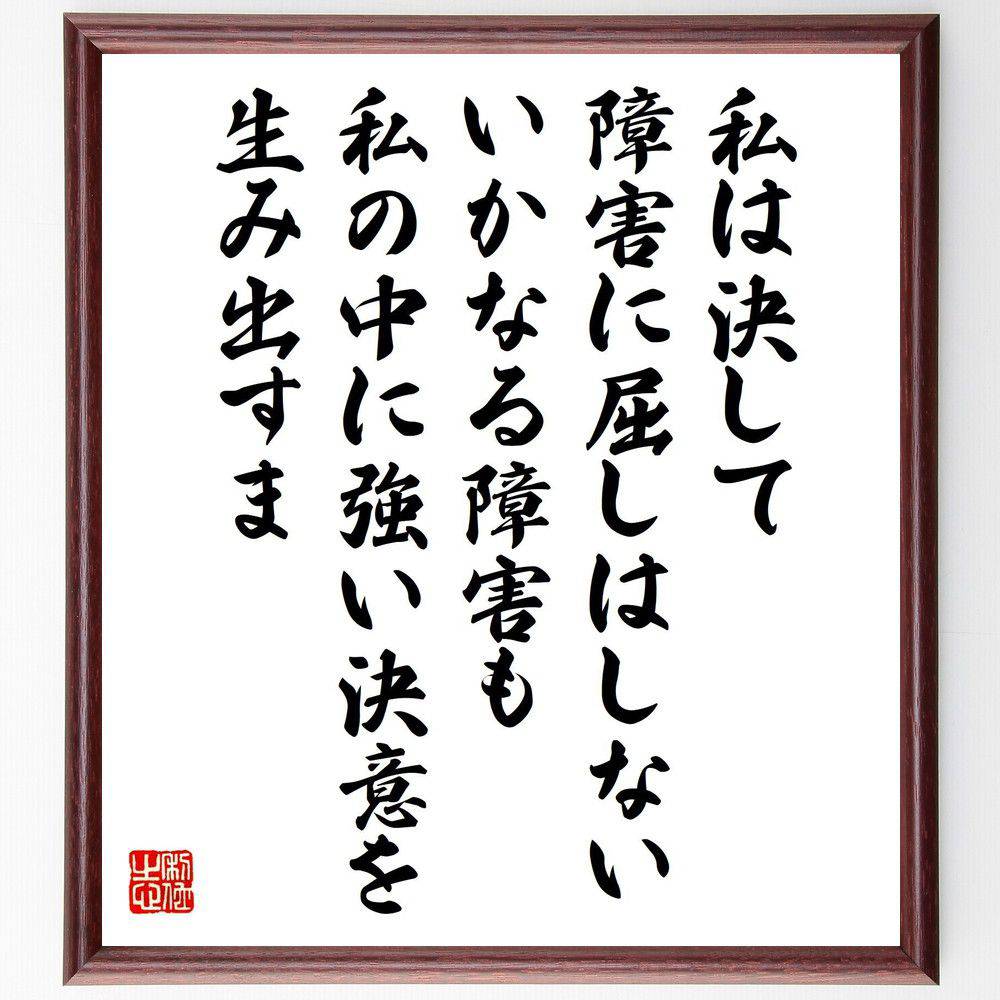 私は決して
障害に屈しはしない
いかなる障害も
私の中に強い決意を
生み出すま